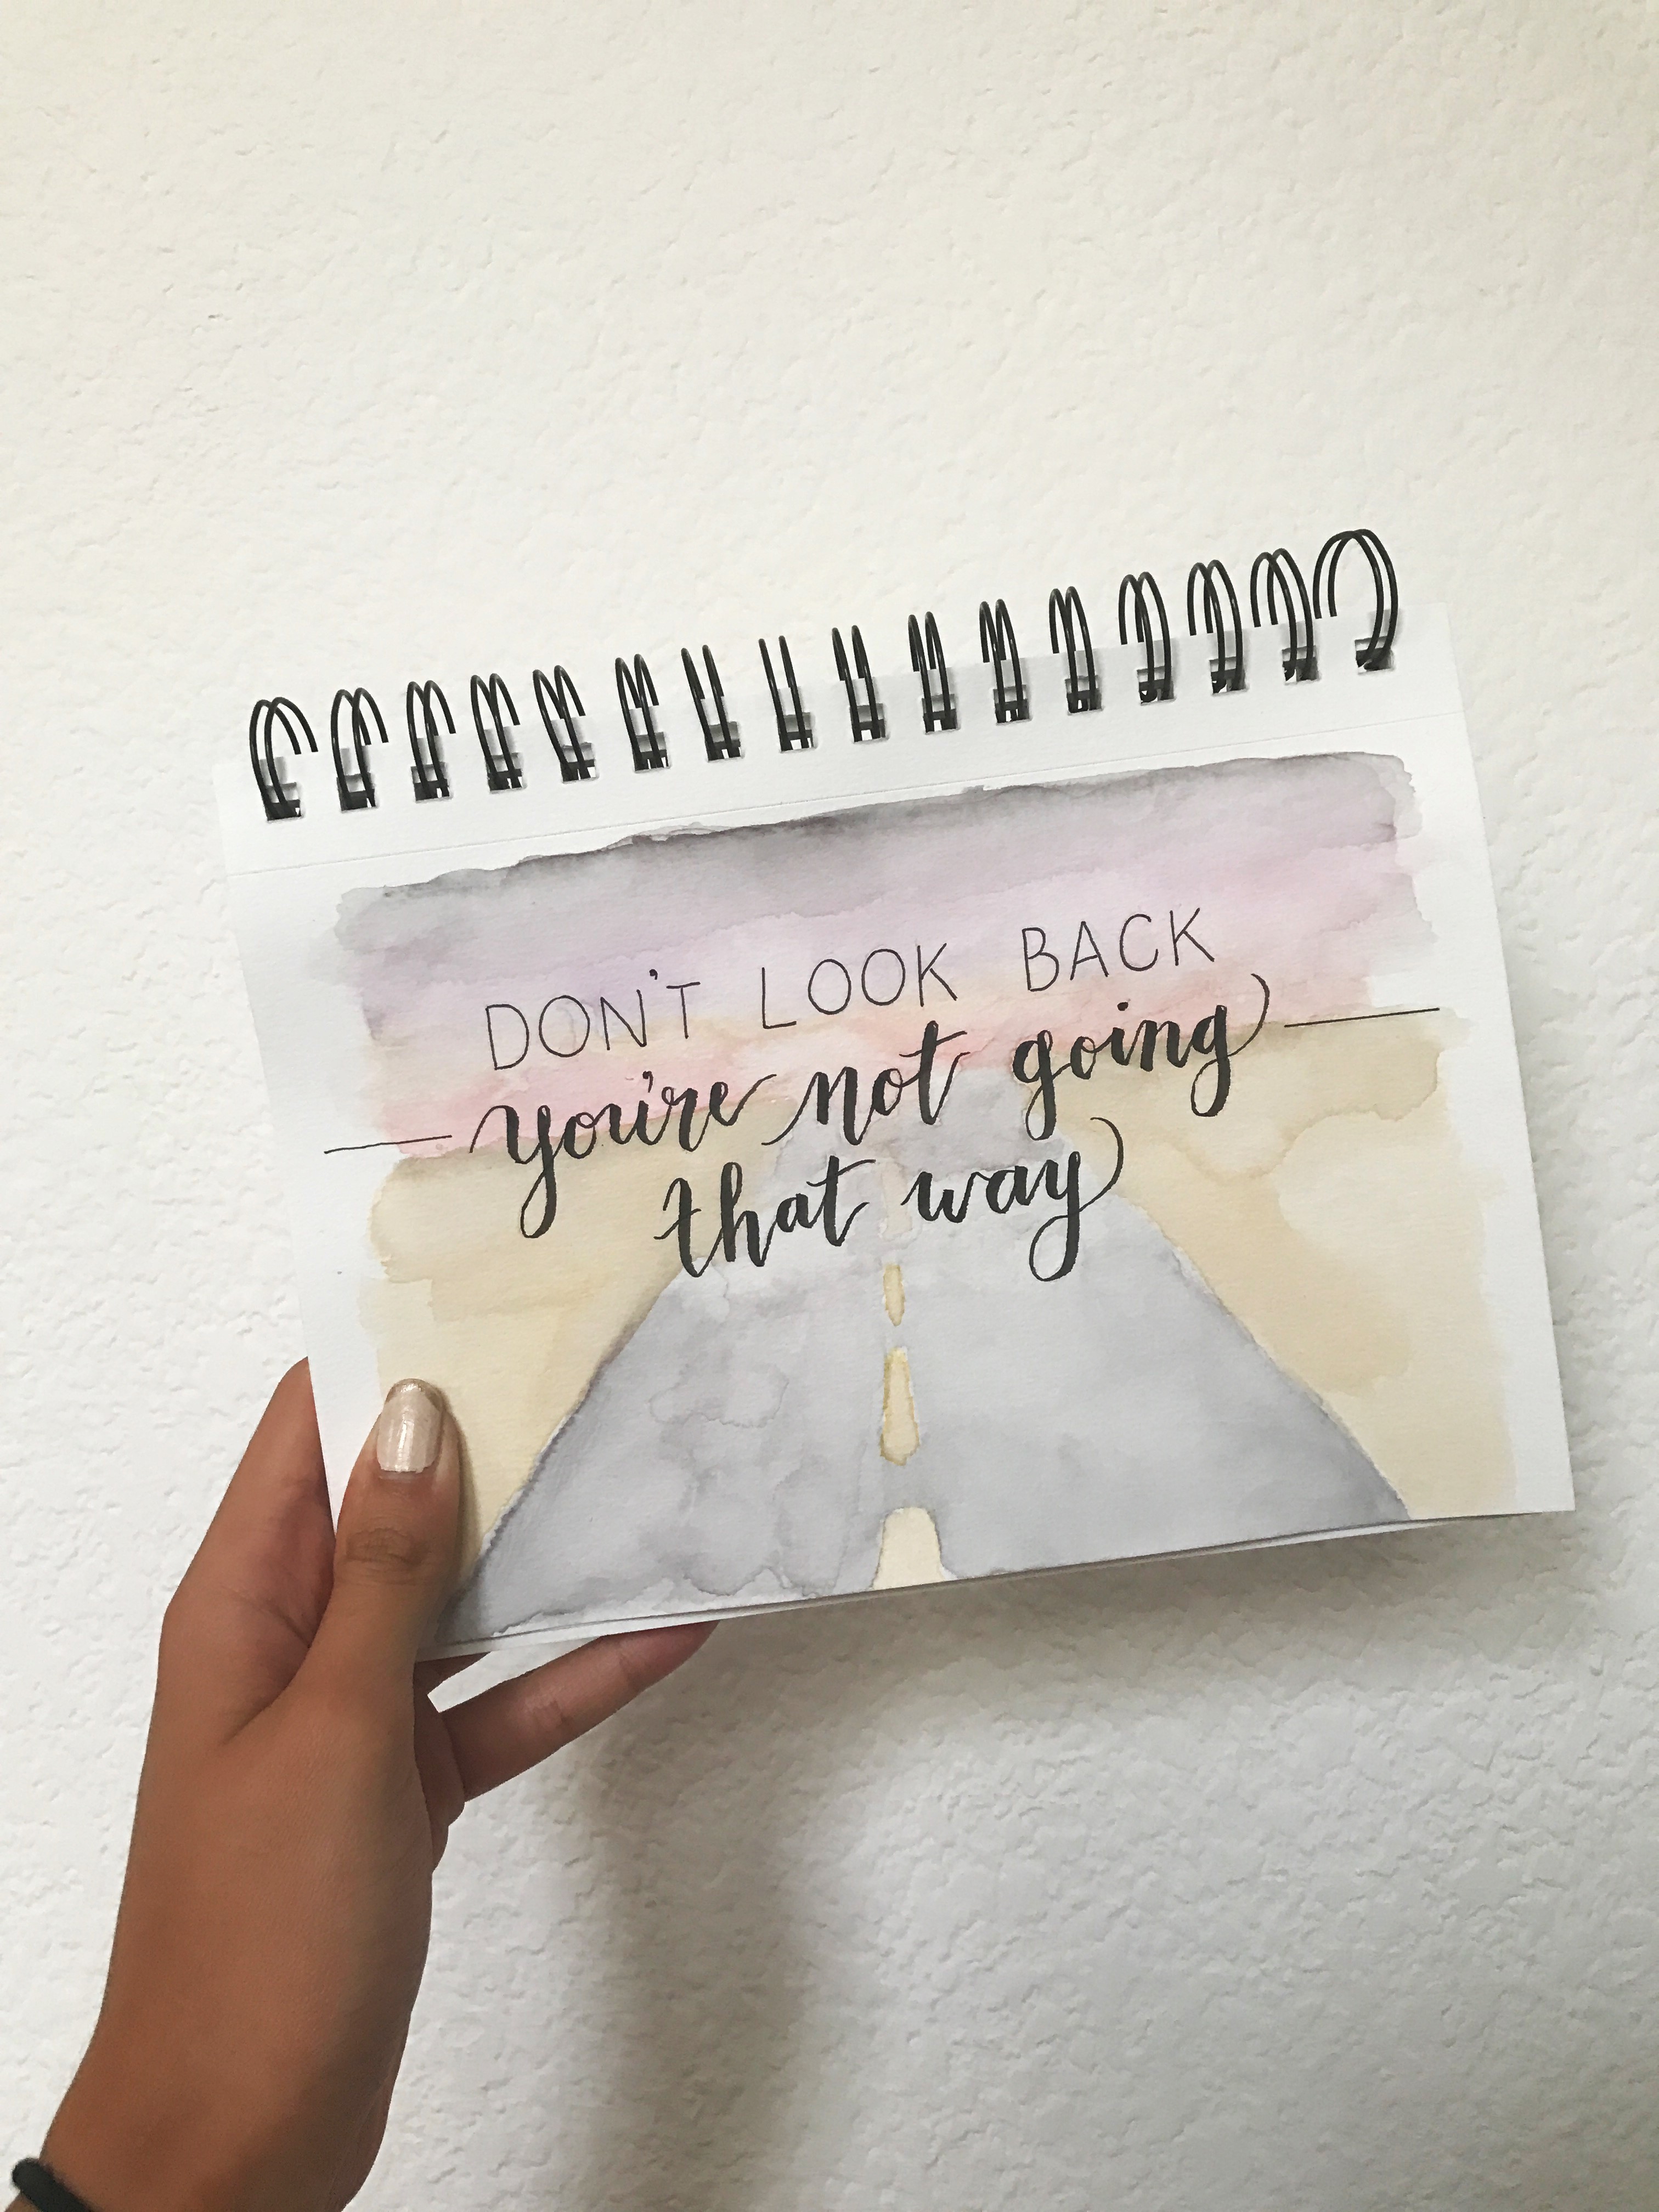 DON'T LOOK BACK
you're not going
that way